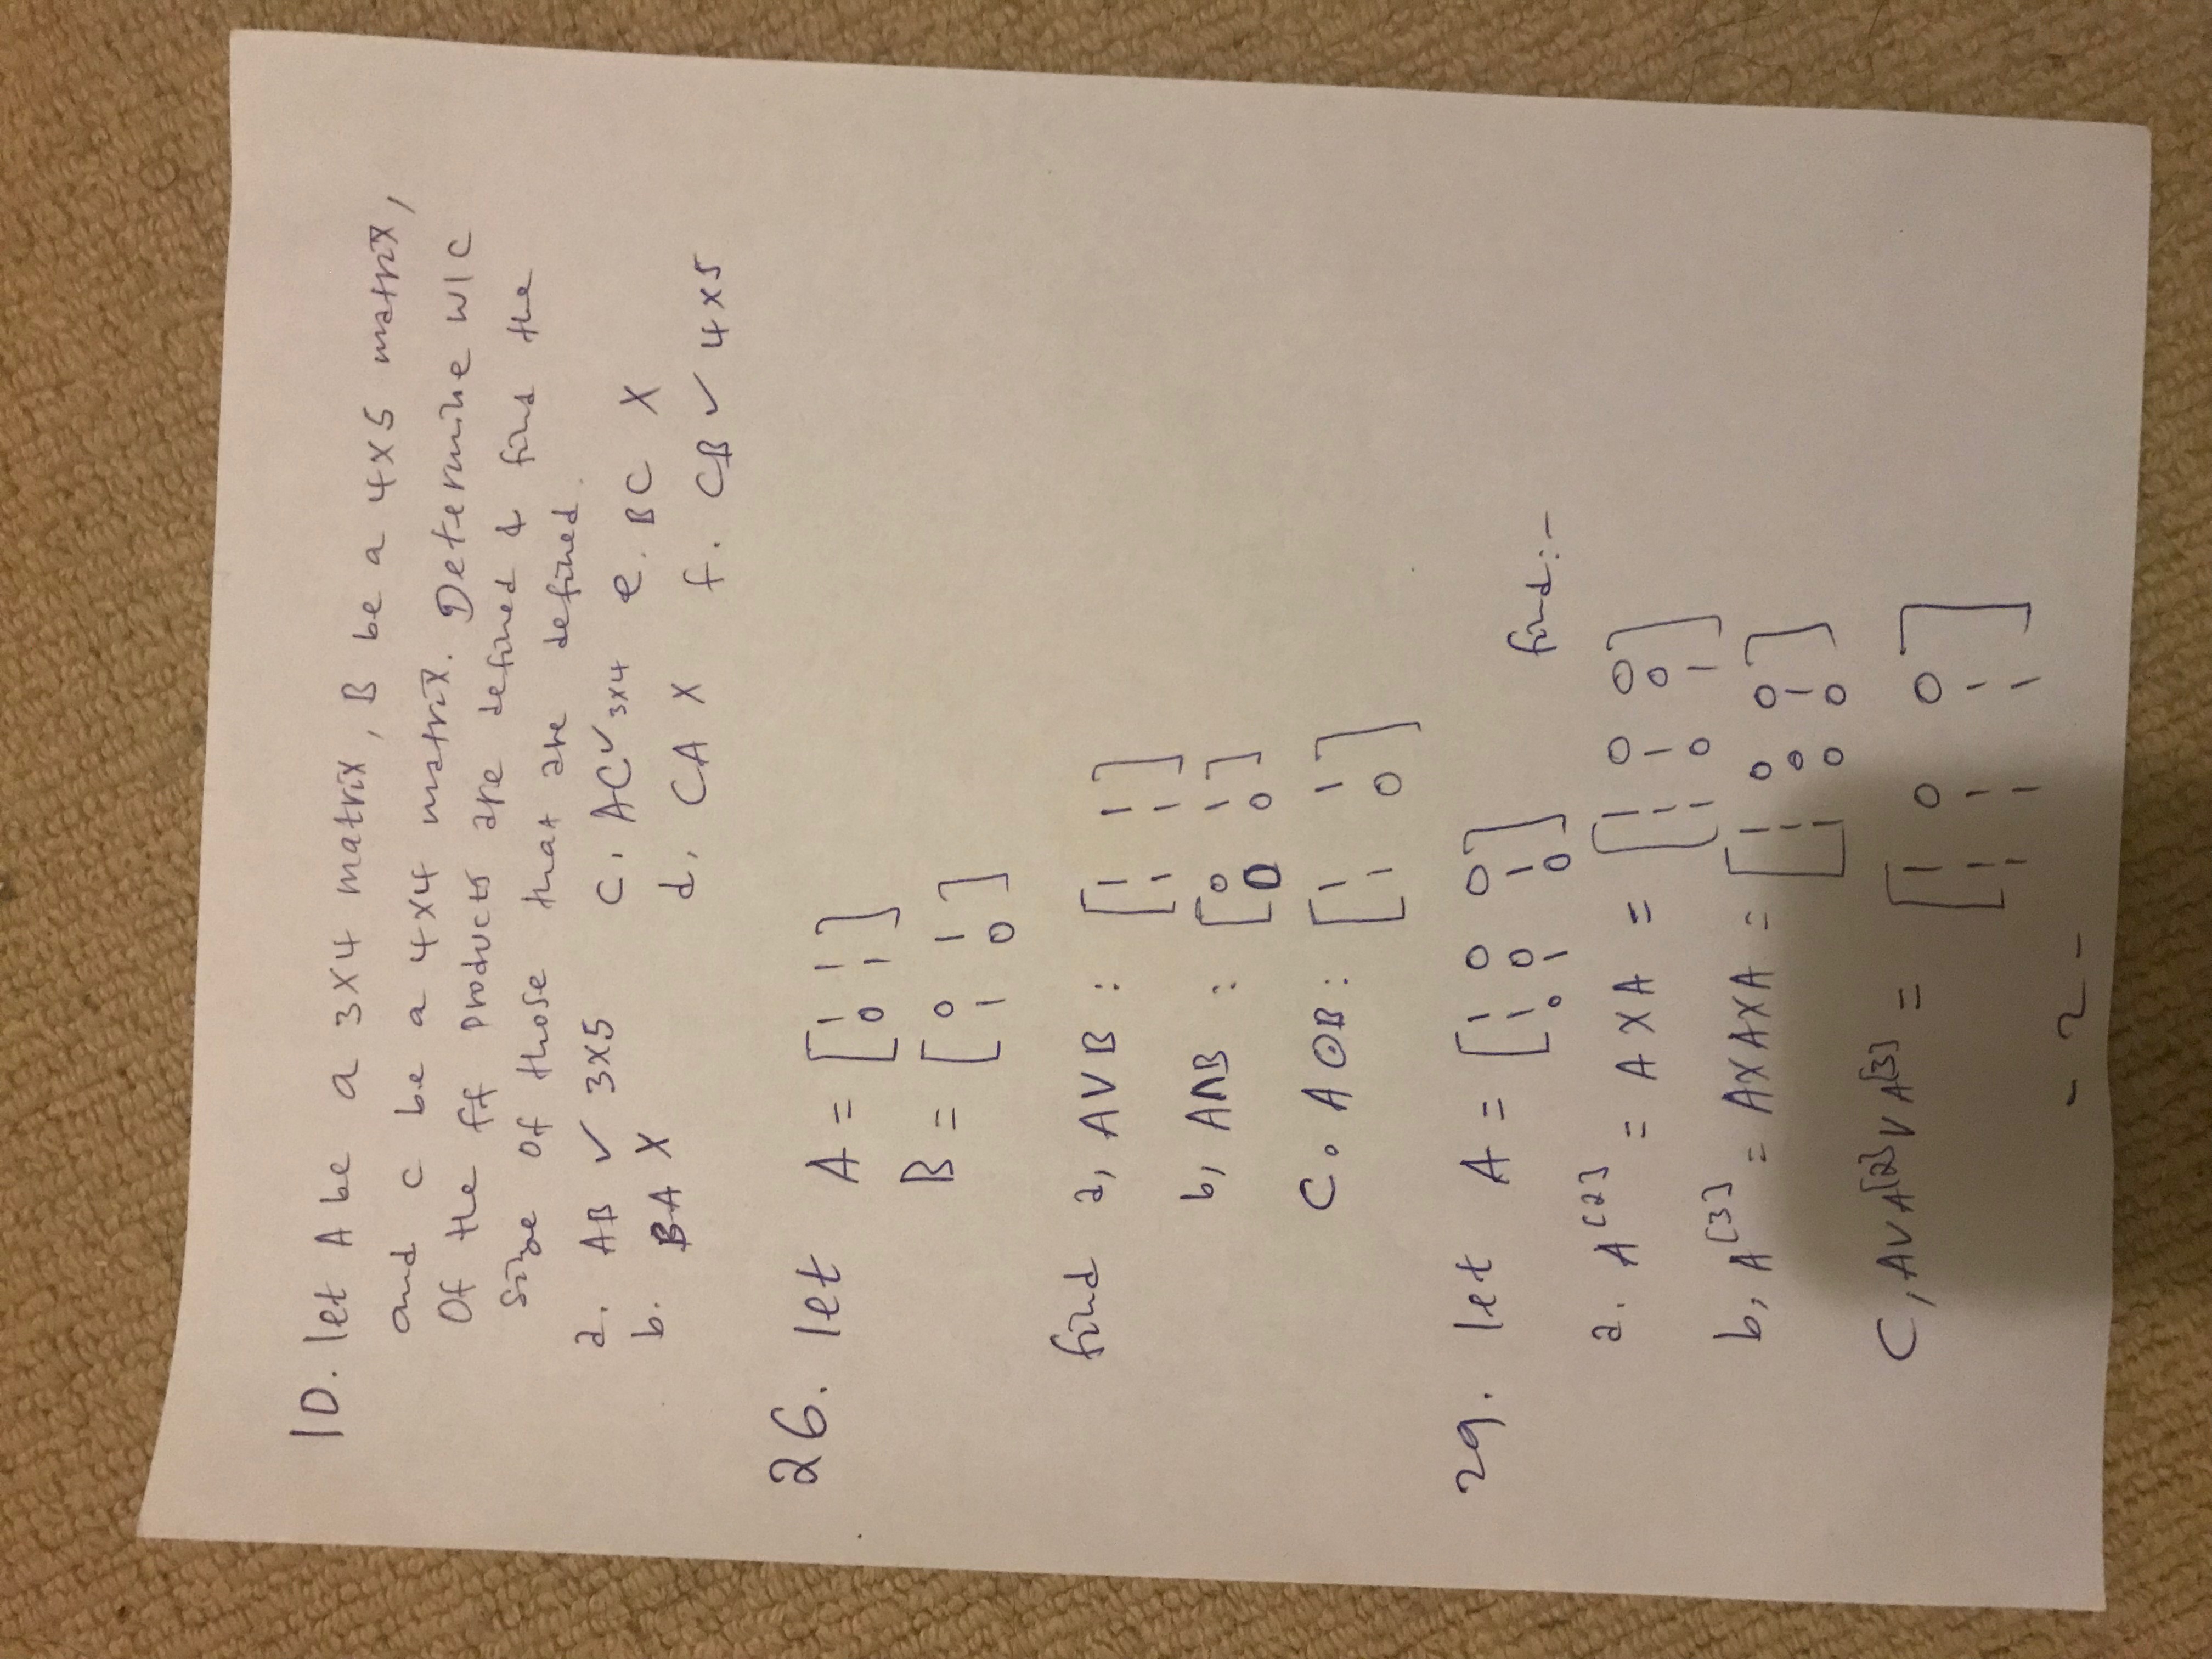 10. let A be a 3X4 matrix, B be a 4X5 matrix,
and c be a 4X4 matrix. Determine w/c
Of the ff products are defined & find the
size of those that are defined.
a. AB ✓ 3X5 c. AC ✓ 3X4 e. BC X
b. BA X d. CA X f. CB ✓ 4X5
26. let A = [ 1 1
0 1 ]
B = [ 0 1
1 0 ]
find a, AVB : [ 1 1
1 1 ]
b, AΛB : [ 0 1
0 0 ]
C. A⊙B: [ 1 1
1 0 ]
29. let A = [ 1 0 0
1 0 1
0 1 0 ] find:-
a. A^[2] = AXA = [ 1 0 0
1 1 0
1 0 1 ]
b, A^[3] = AXAXA = [ 1 0 0
1 0 1
1 0 0 ]
C, AVA^[2]VA^[3] = [ 1 0 0
1 1 1
1 1 1 ]
- 2 -